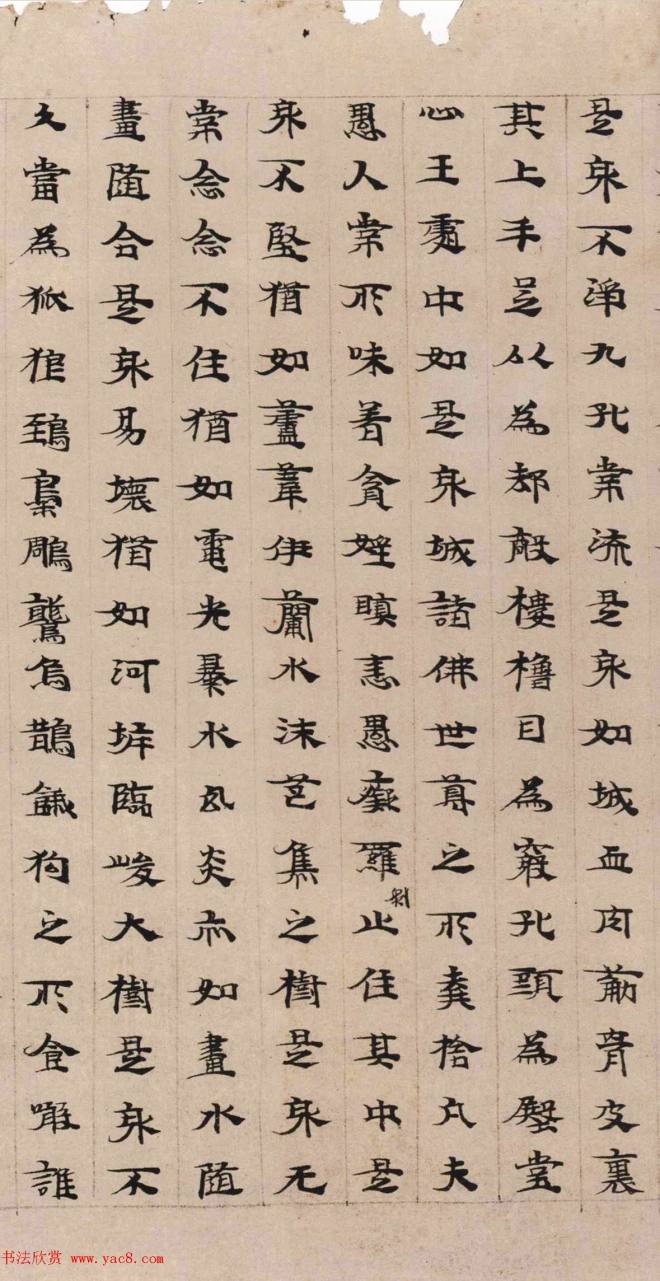 是身不淨九孔常流是身如城血肉筋骨皮裹
其上手足以為却敵樓櫓目為竅孔頭為殿堂
心王處中如是身城諸佛世尊之所棄捨凡夫
愚人常所味著貪婬瞋恚愚癡羅剎止住其中是
身不堅猶如蘆葦伊蘭水沫芭焦之樹是身无
常念念不住猶如電光暴水幻炎亦如畫水隨
畫隨合是身易壞猶如河岸臨峻大樹是身不
久當為狐狼鵄梟鵰鷲烏鵲餓狗之所食噉誰
书法欣赏 www.yac8.com